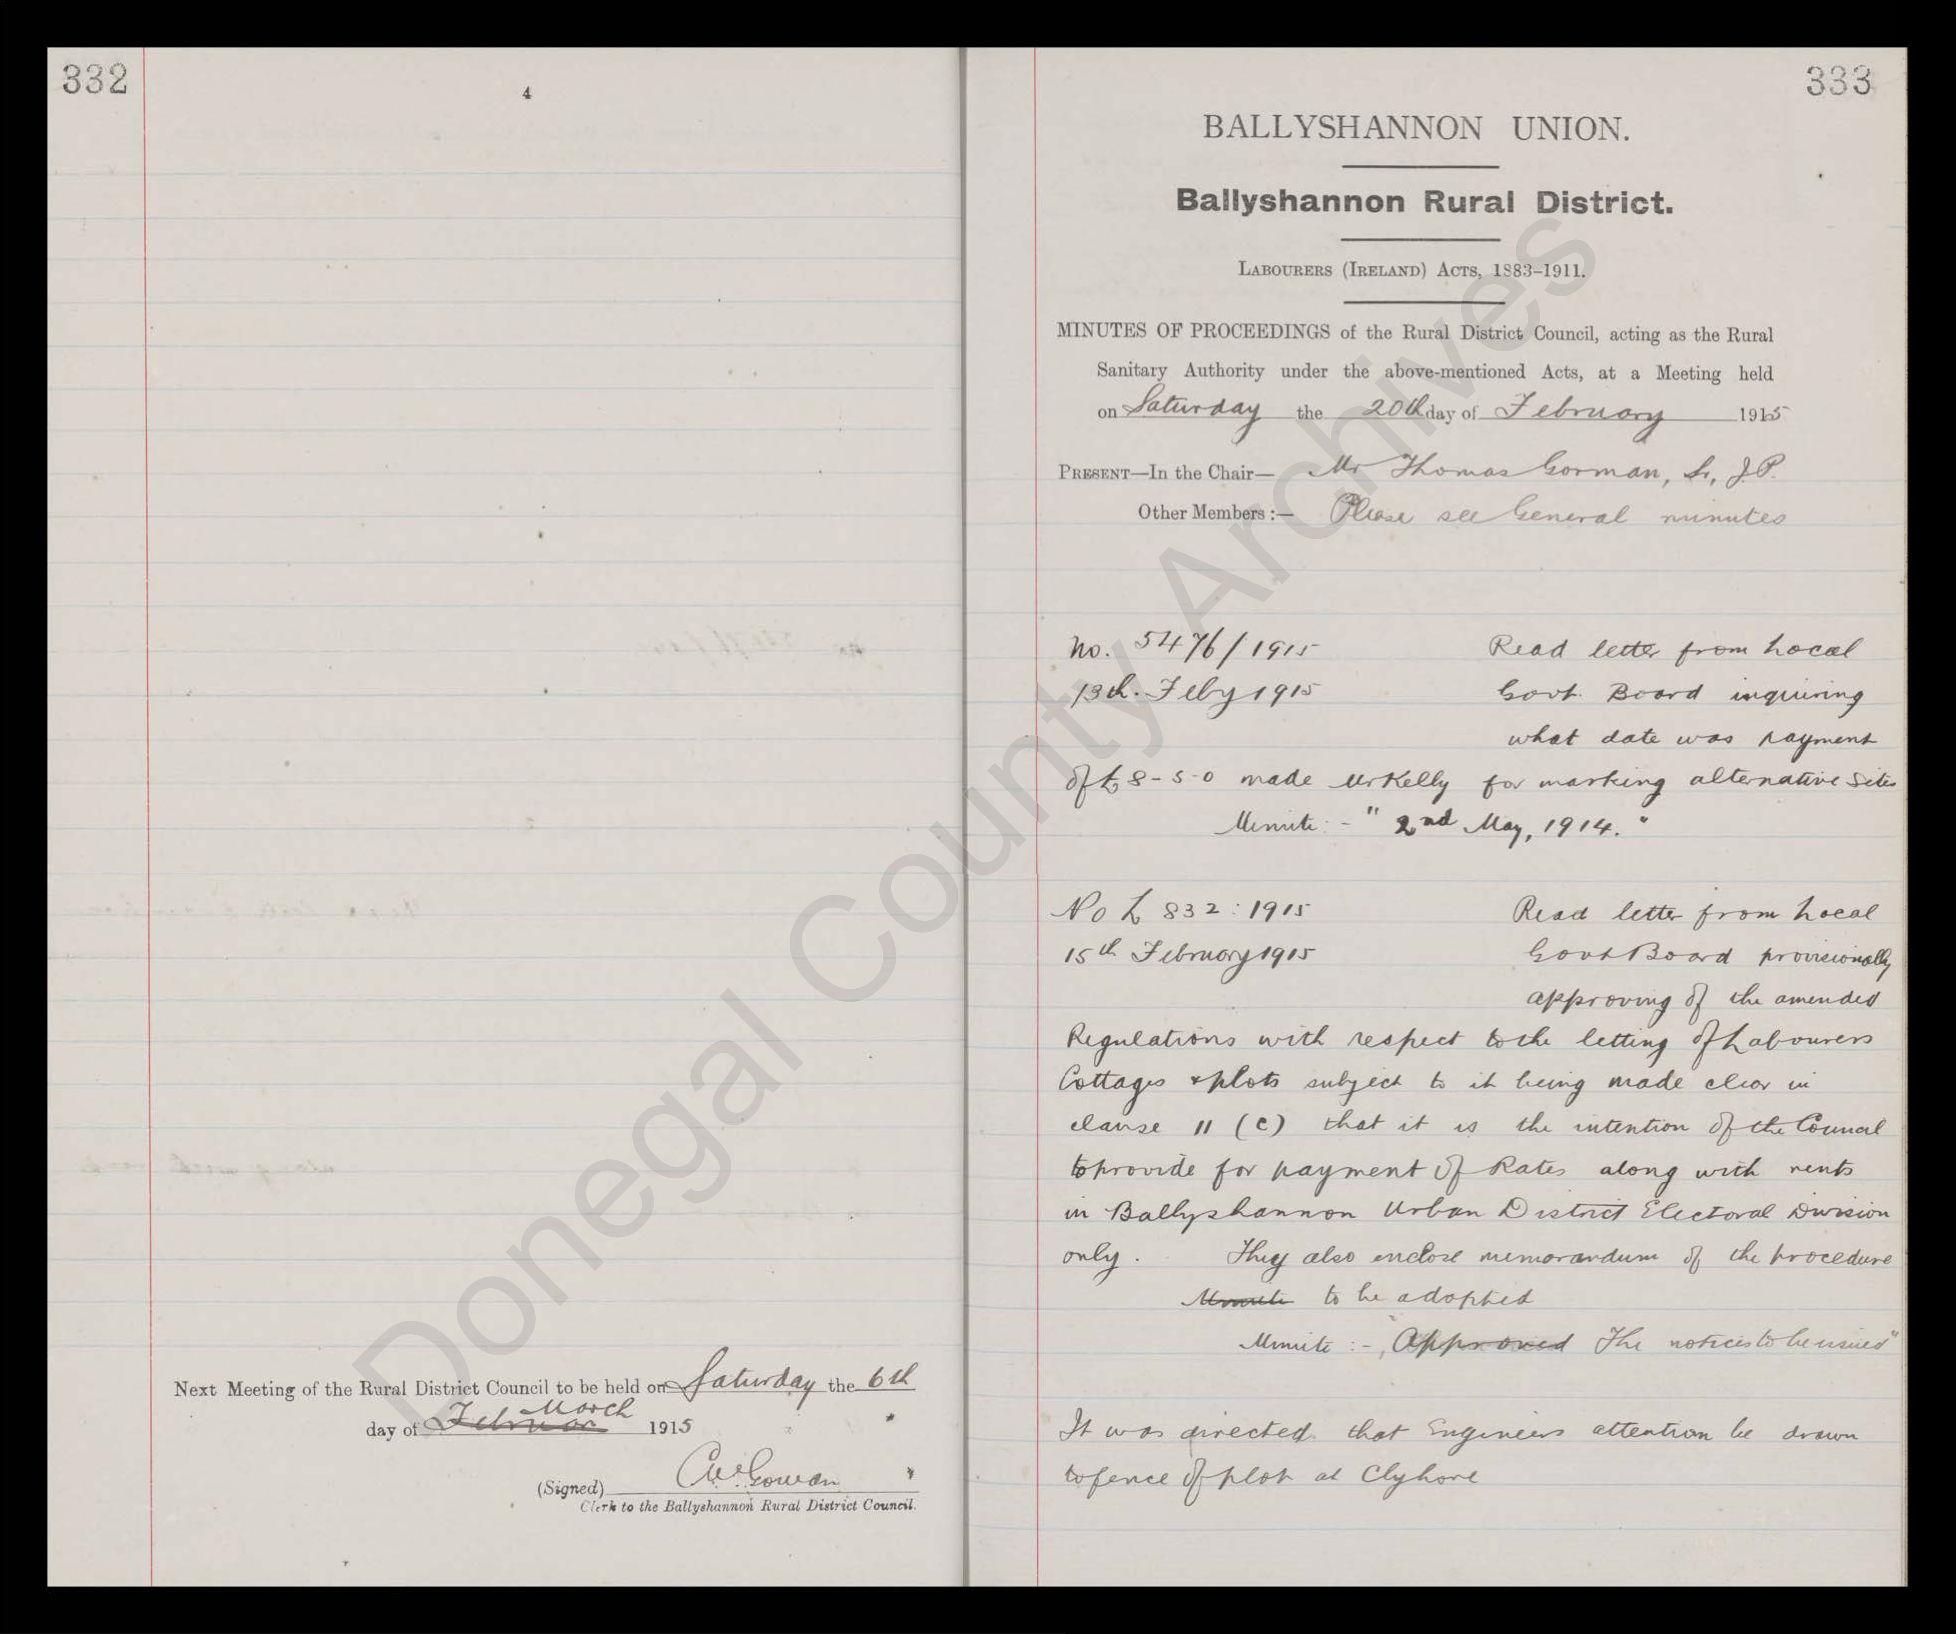 332
4
Next Meeting of the Rural District Council to be held on Saturday the 6th
March
day of Februar 1915
(Signed) CMcGowan
Clerk to the Ballyshannon Rural District Council.
333
BALLYSHANNON UNION.
Ballyshannon Rural District.
LABOURERS (IRELAND) ACTS, 1883–1911.
MINUTES OF PROCEEDINGS of the Rural District Council, acting as the Rural
Sanitary Authority under the above-mentioned Acts, at a Meeting held
on Saturday the 20th day of February 1915
PRESENT—In the Chair— Mr Thomas Gorman, Sr, J.P.
Other Members :— Please see General minutes
No. 5476/1915 Read letter from Local
13th. Feby 1915 Govt. Board inquiring
what date was payment
of £8-5-0 made Mr Kelly for marking alternative sites
Minute:- "2nd May, 1914."
No L 832:1915 Read letter from Local
15th February 1915 Govt Board provisionally
approving of the amended
Regulations with respect to the letting of Labourers
Cottages & plots subject to it being made clear in
clause 11 (c) that it is the intention of the Council
to provide for payment of Rates along with rents
in Ballyshannon Urban District Electoral Division
only. They also enclose memorandum of the procedure
Minute to be adopted
Minute :- "Approved The notices to be issued"
It was directed that Engineers attention be drawn
to fence of plot at Clyhore
Donegal County Archives